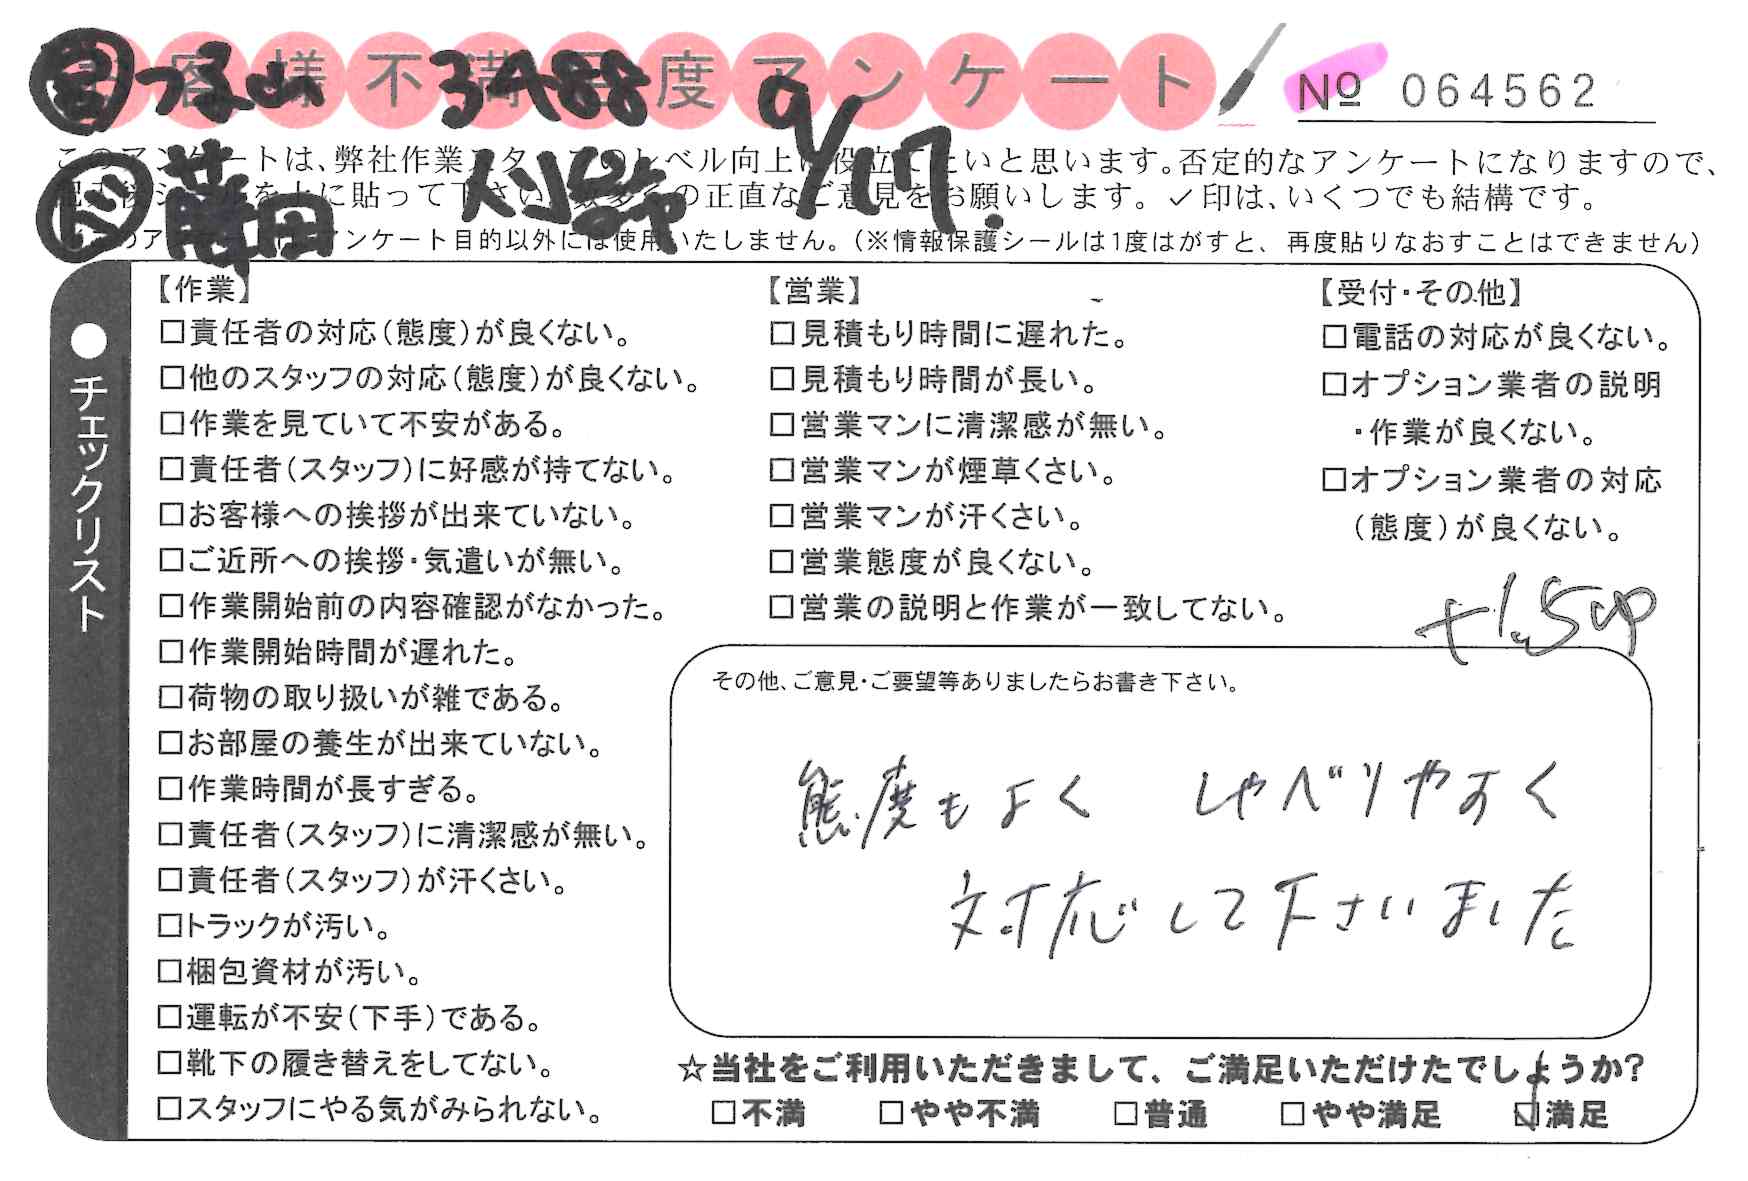 お客様不満足度アンケート
№ 064562
営 3A88 9/17.
ド 藤田
このアンケートは、弊社作業スタッフのレベル向上に役立てたいと思います。否定的なアンケートになりますので、
記入後シールを上に貼って下さい。数多くの正直なご意見をお願いします。✓印は、いくつでも結構です。
アンケート目的以外には使用いたしません。(※情報保護シールは1度はがすと、再度貼りなおすことはできません)
●チェックリスト
【作業】
□責任者の対応(態度)が良くない。
□他のスタッフの対応(態度)が良くない。
□作業を見ていて不安がある。
□責任者(スタッフ)に好感が持てない。
□お客様への挨拶が出来ていない。
□ご近所への挨拶・気遣いが無い。
□作業開始前の内容確認がなかった。
□作業開始時間が遅れた。
□荷物の取り扱いが雑である。
□お部屋の養生が出来ていない。
□作業時間が長すぎる。
□責任者(スタッフ)に清潔感が無い。
□責任者(スタッフ)が汗くさい。
□トラックが汚い。
□梱包資材が汚い。
□運転が不安(下手)である。
□靴下の履き替えをしてない。
□スタッフにやる気がみられない。
【営業】
□見積もり時間に遅れた。
□見積もり時間が長い。
□営業マンに清潔感が無い。
□営業マンが煙草くさい。
□営業マンが汗くさい。
□営業態度が良くない。
□営業の説明と作業が一致してない。
【受付・その他】
□電話の対応が良くない。
□オプション業者の説明
・作業が良くない。
□オプション業者の対応
(態度)が良くない。
+1.5up
その他、ご意見・ご要望等ありましたらお書き下さい。
態度もよく しゃべりやすく
対応して下さいました
☆当社をご利用いただきまして、ご満足いただけたでしょうか?
□不満 □やや不満 □普通 □やや満足 ☑満足